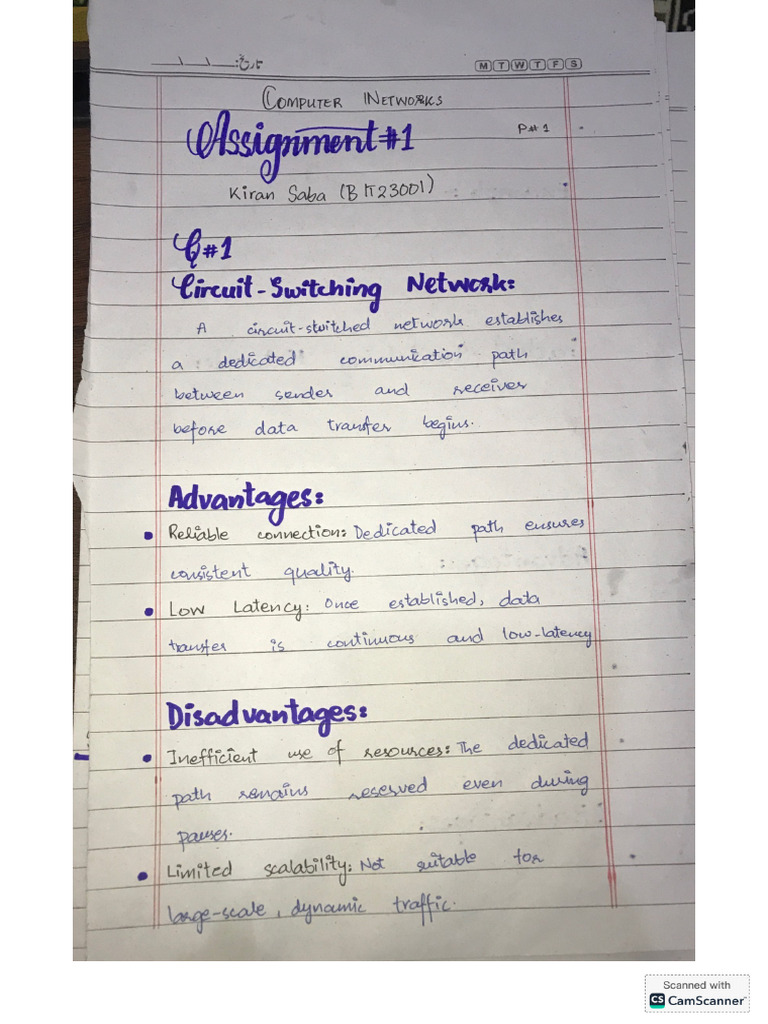 تاریخ:
M T W T F S
COMPUTER NETWORKS
Assignment #1
P# 1
Kiran Saba (BIT23001)
Q#1
Circuit-Switching Network:
A circuit-switched network establishes
a dedicated communication path
between sender and receiver
before data transfer begins.
Advantages:
• Reliable connection: Dedicated path ensures
consistent quality.
• Low Latency: Once established, data
transfer is continuous and low-latency
Disadvantages:
• Inefficient use of resources: The dedicated
path remains reserved even during
pauses.
• Limited scalability: Not suitable for
large-scale, dynamic traffic.
Scanned with
CS CamScanner